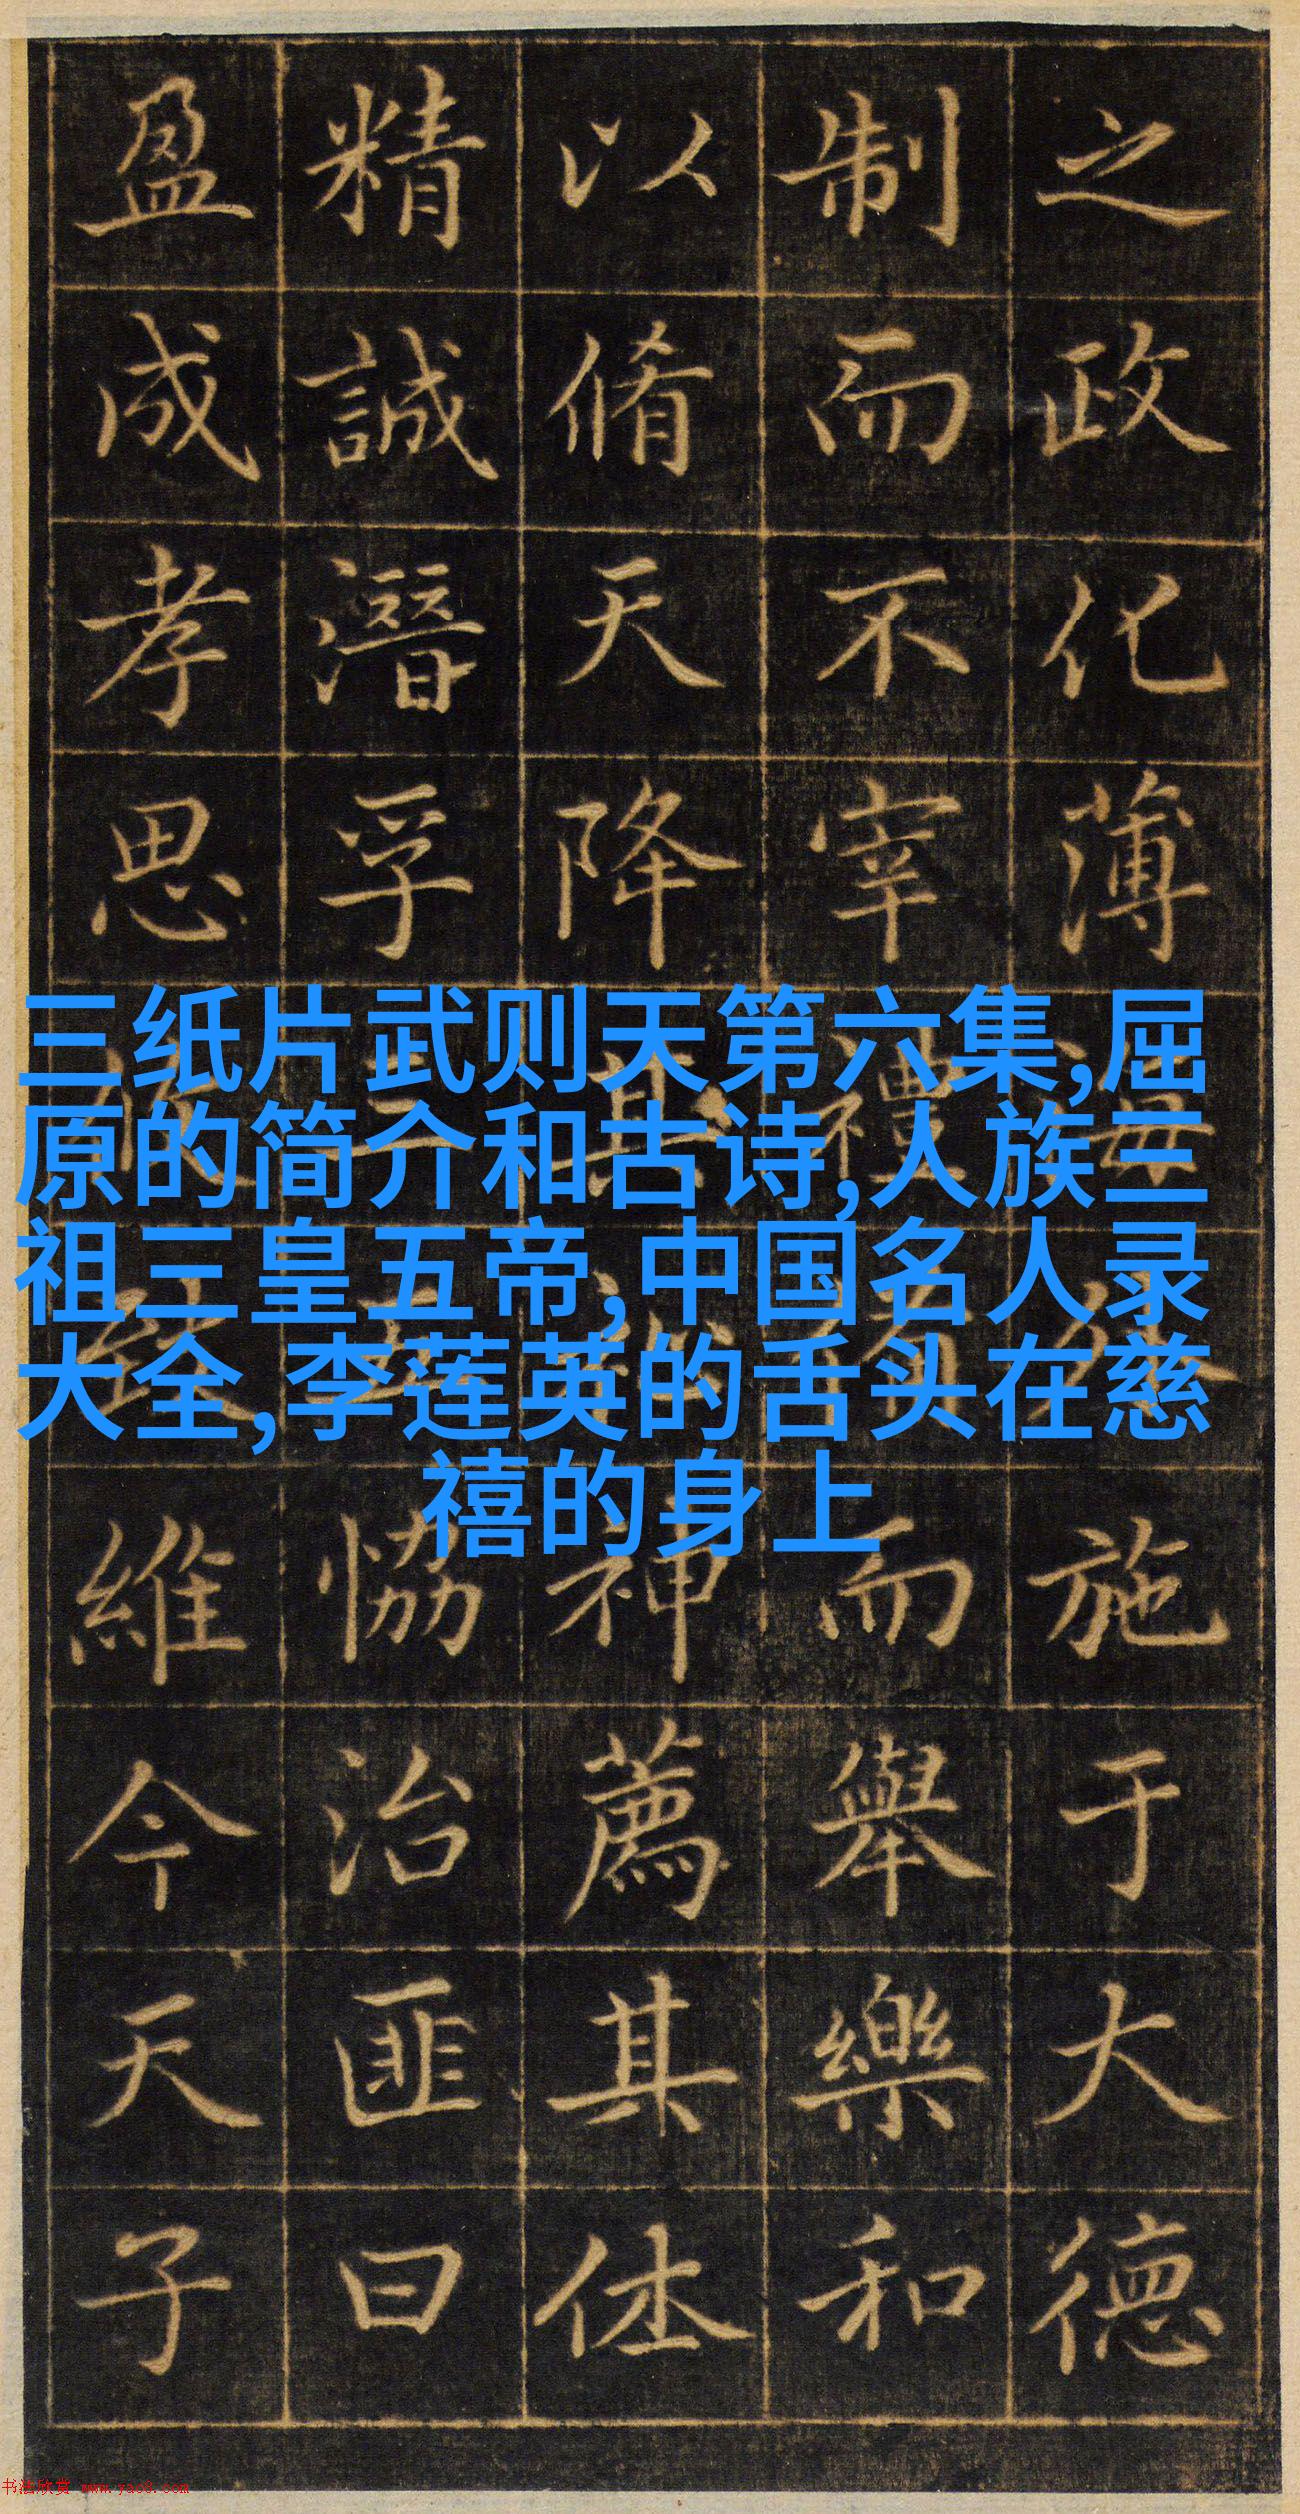 之政化薄海施于大德
制而不宰禮而舉樂和
以脩天降其神薦其体
精誠潛孚恊治匪曰
盈成孝思維今天子
三纸片武则天第六集,屈
原的简介和古诗,人族三
祖三皇五帝,中国名人录
大全,李莲英的舌头在慈
禧的身上
书法欣赏 www.yac8.com